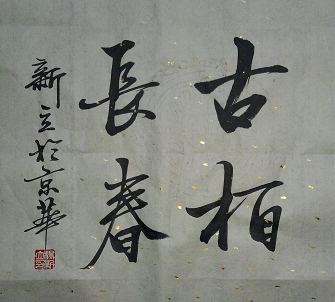 古柏
長春
新立於京華